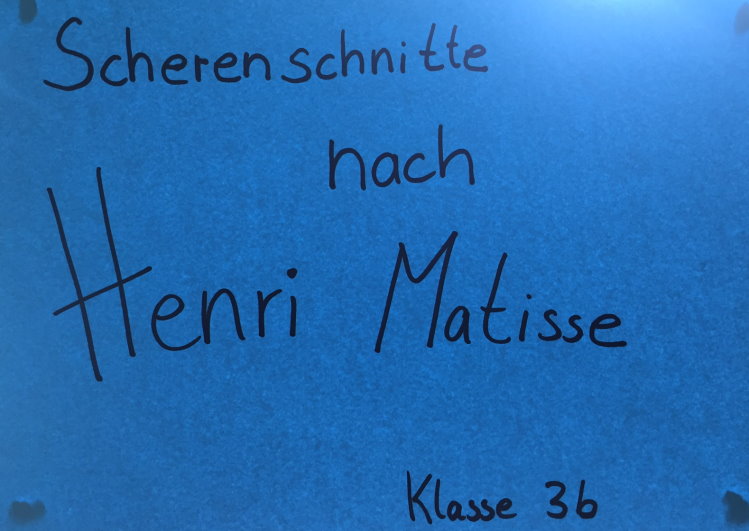 Scherenschnitte
nach
Henri Matisse
Klasse 3b